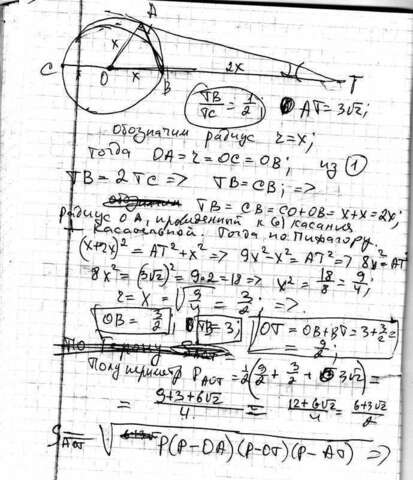 A
x
C O x B 2x T
TB/TC = 1/2; AT = 3√2;
обозначим радиус r = x;
тогда OA = r = OC = OB; из (1)
TB = 2TC => TB = CB; =>
TB = CB = CO + OB = x + x = 2x;
радиус OA, проведенный к () касания
⊥ касательной. Тогда по Пифагору
(x+2x)² = AT² + x² => 9x² - x² = AT² => 8x² = AT²
8x² = (3√2)² = 9·2 = 18 => x² = 18/8 = 9/4;
r = x = √(9/4) = 3/2; =>
OB = 3/2; TB = 3; OT = OB + BT = 3 + 3/2 = 9/2;
По Герону
Полупериметр P_AOT = 1/2(9/2 + 3/2 + 3√2) =
= (9+3+6√2)/4 = (12+6√2)/4 = (6+3√2)/2
S_AOT = √(P(P-OA)(P-OT)(P-AT)) =>